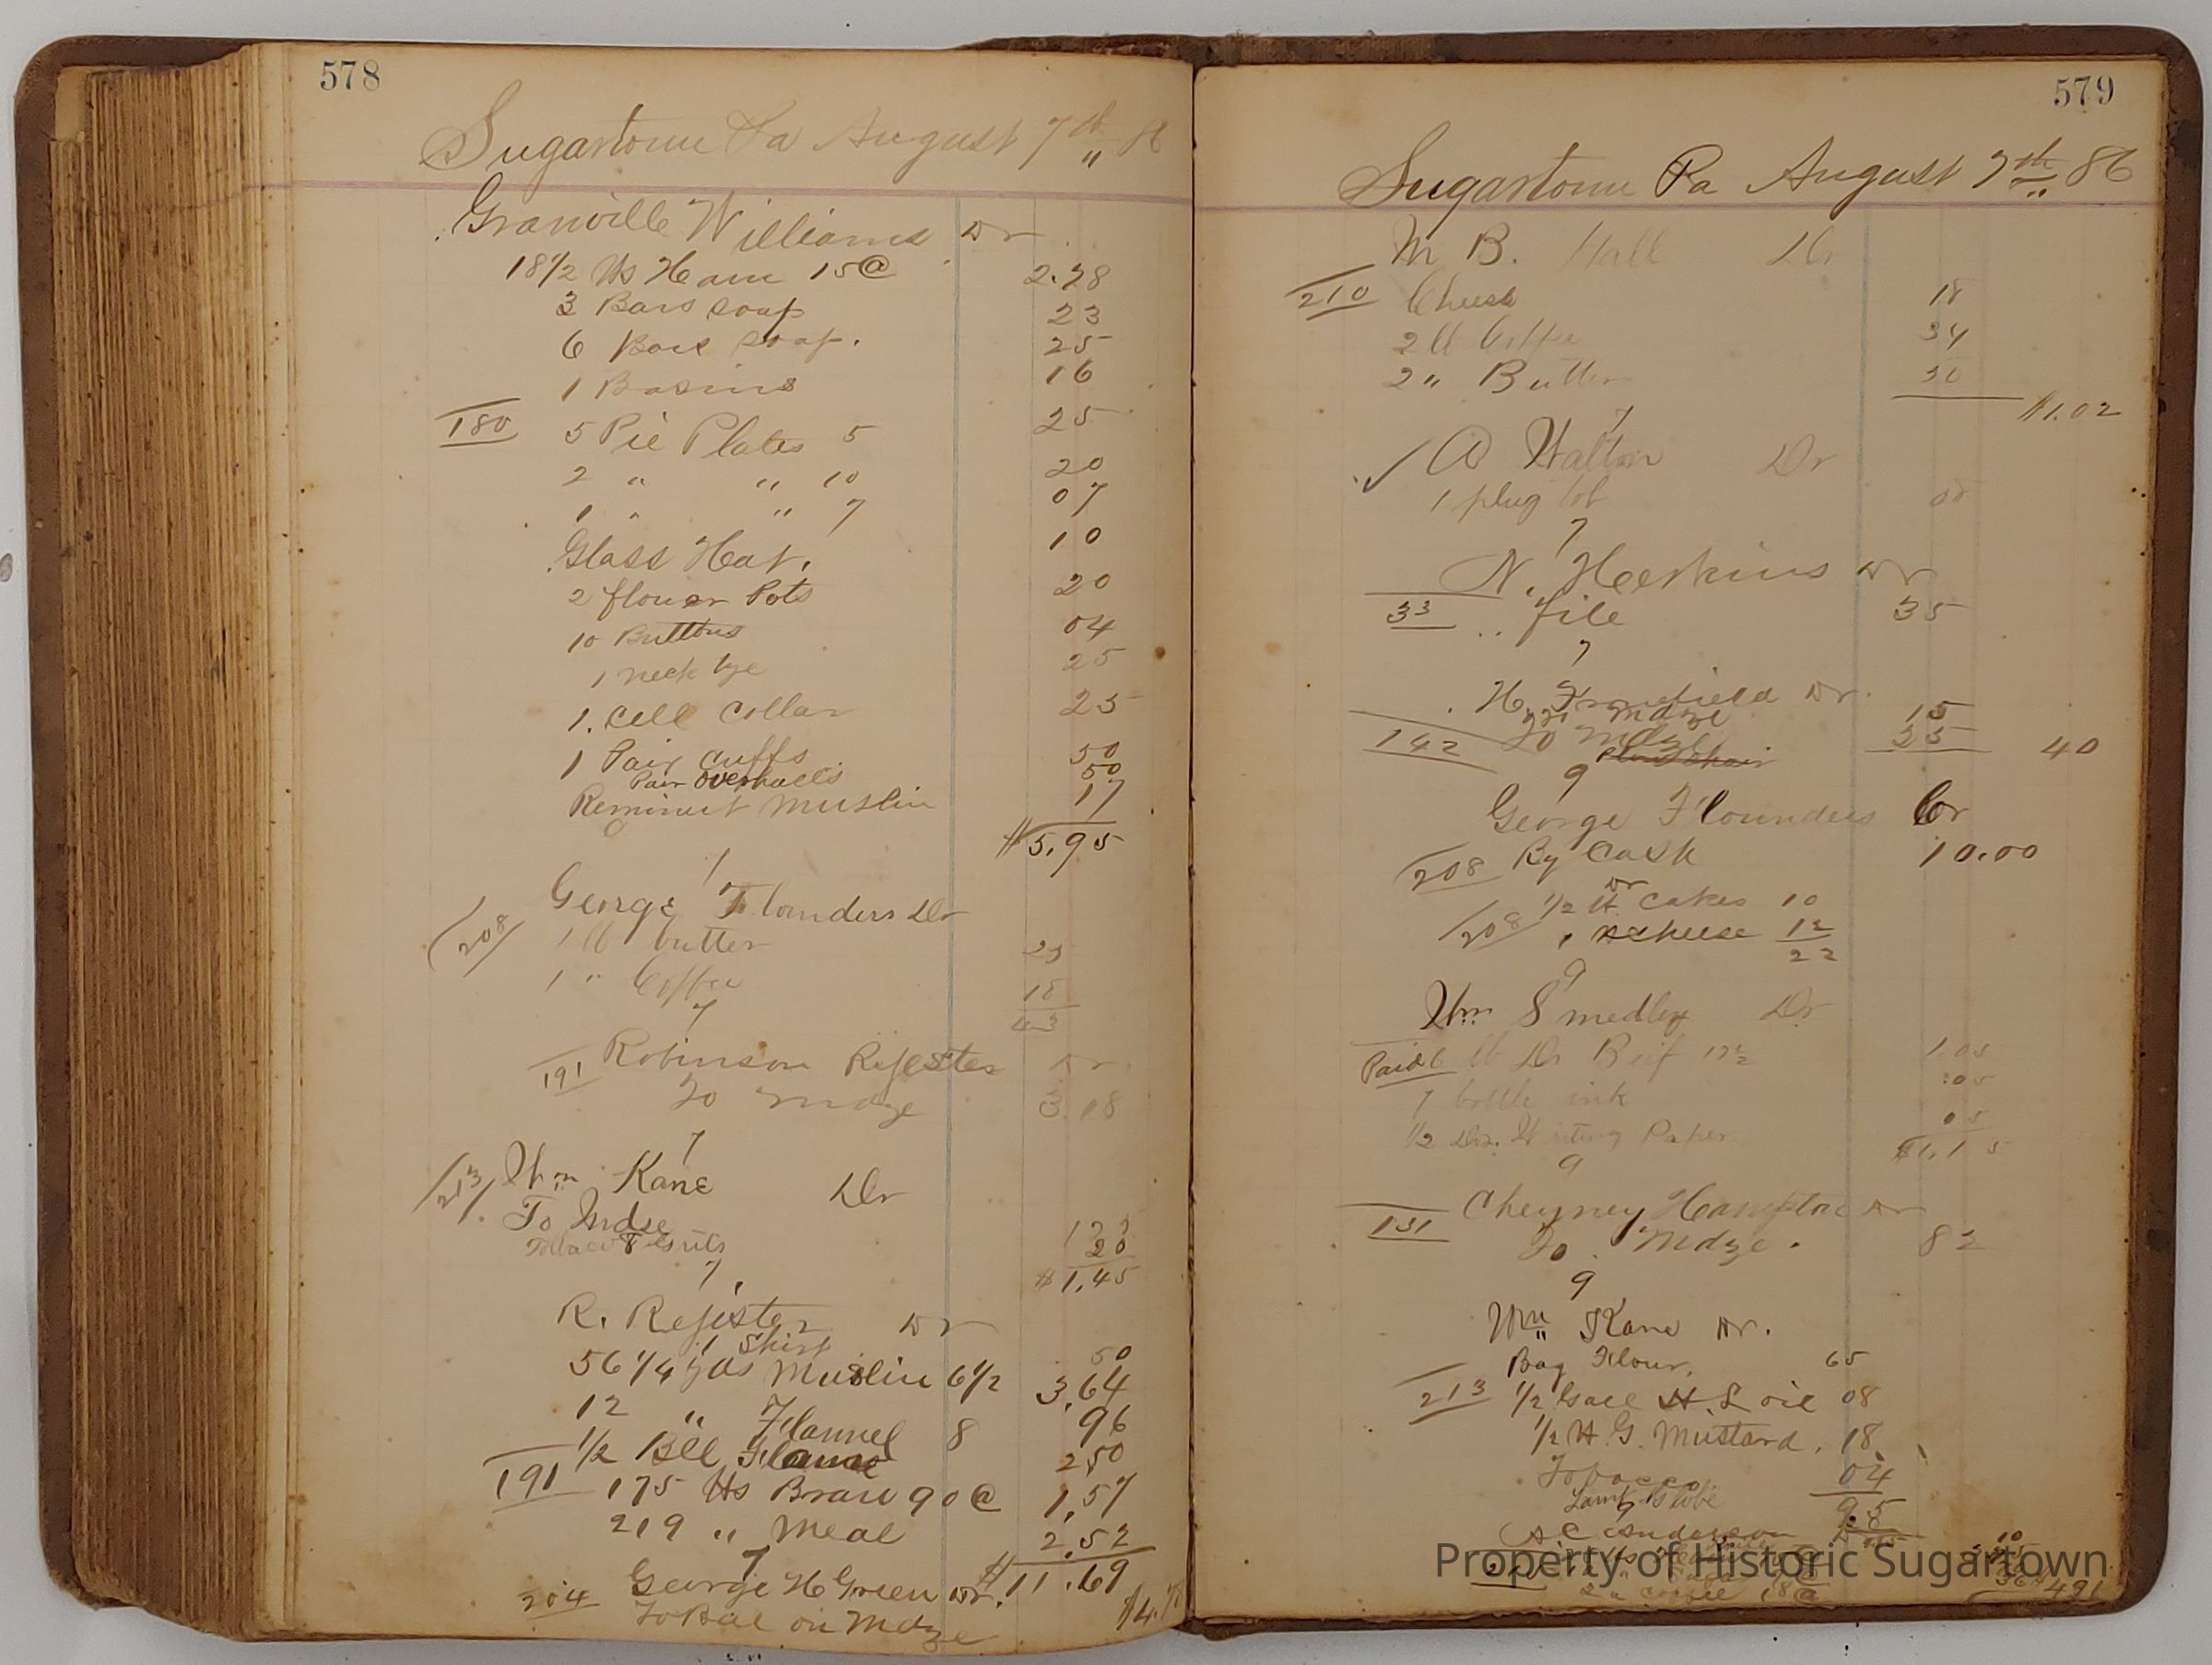 578
Sugartown Pa August 7th 86
Granville Williams Dr
18 1/2 lbs Ham 15@ 2.78
3 Bars soap 23
6 Bars soap. 25
1 Basins 16
180 5 Pie Plates 5 25
2 " " 10 20
1 " " 7 07
Glass Hat. 10
2 flower Pots 20
10 Buttons 04
1 neck tye 25
1. Cell Collar 25
1 Pair Cuffs 50
Pair Overhalls 50
Reminut Muslin 17
$5.95
George Flounders Dr
208 1 lb butter 25
1 " Coffee 18
43
7
191 Robinson Register Dr
To Mdze 3.18
7
213 Wm Kane Dr
To Mdse 1 2
20
7 $1.45
R. Register Dr
1 Shirt 50
56 1/4 yds Muslin 6 1/2 3.64
12 " Flannel 8 96
1/2 Bll 2.50
191 175 lbs Bran 90@ 1.57
219 " Meal 2.52
7 $11.69
204 George H Green Dr.
To Bal on Mdze $4.
579
Sugartown Pa August 7th 86
M B. Hall Dr
210 Cheese 18
2 lb Coffee 34
2 " Butter 50
$1.02
7
✓ A Walton Dr
1 plug tob 05
7
N. Heskins Dr
33 file 35
7
H. Dr.
Mdze 15
142 To Mdze 25 40
9
George Flounders Cr
208 By Cash 10.00
Dr
208 1/2 lb Cakes 10
1 " cheese 12
22
9
Wm Smedley Dr
Paid 6 lb Dr Beif 17 1/2 1.05
1 bottle ink .05
1/2 Doz. Writing Paper 05
$1.15
9
Cheyney Hampton Dr
131 To Mdze. 82
9
Wm Kane Dr.
Bag Flour. 65
213 1/2 Gall H.L oil 08
1/2 lb G. Mustard. 18
Tobacco 04
Lamp Globe 95
9
A C Anderson Dr
2 " coffee 18@ 491
Property of Historic Sugartown